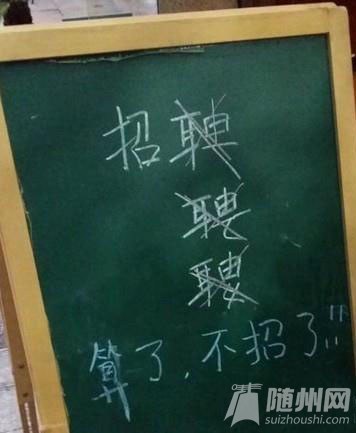 招
算了，不招了!!!
随州网
suizhoushi.com